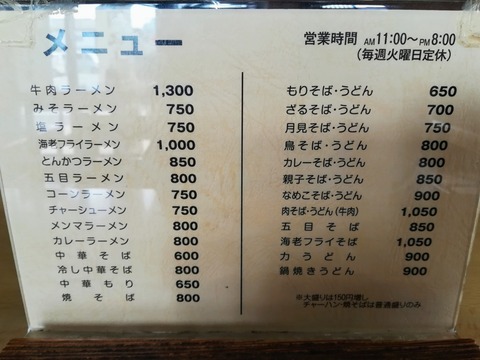 メニュー
営業時間 AM11:00〜PM8:00
(毎週火曜日定休)
牛肉ラーメン 1,300
みそラーメン 750
塩ラーメン 750
海老フライラーメン 1,000
とんかつラーメン 850
五目ラーメン 800
コーンラーメン 750
チャーシューメン 750
メンマラーメン 800
カレーラーメン 800
中華そば 600
冷し中華そば 800
中華もり 650
焼そば 800
もりそば・うどん 650
ざるそば・うどん 700
月見そば・うどん 750
鳥そば・うどん 800
カレーそば・うどん 800
親子そば・うどん 850
なめこそば・うどん 900
肉そば・うどん(牛肉) 1,050
五目そば 850
海老フライそば 1,050
力うどん 900
鍋焼きうどん 900
※大盛りは150円増し
チャーハン・焼そばは普通盛りのみ